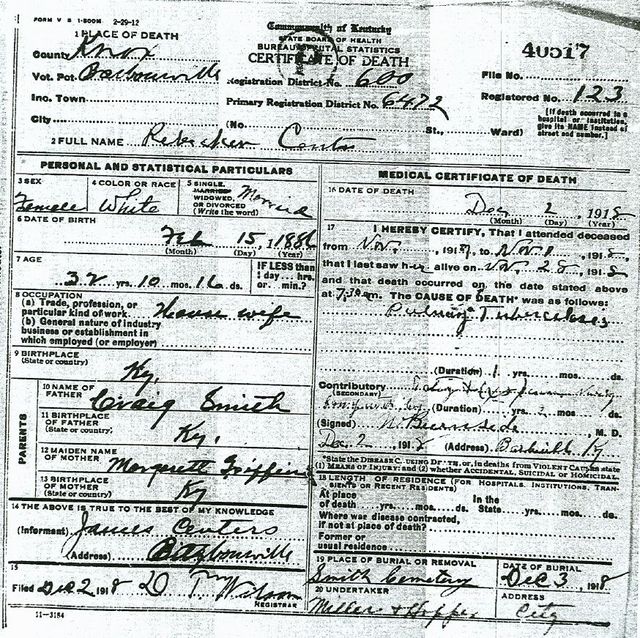 FORM V S 1-500M 2-29-12
Commonwealth of Kentucky
STATE BOARD OF HEALTH
BUREAU OF VITAL STATISTICS
CERTIFICATE OF DEATH
1 PLACE OF DEATH
County Knox
Vot. Pct. Barbourville
Inc. Town
City
Registration District No. 600
Primary Registration District No. 6472
(No. St., Ward)
40517
File No.
Registered No. 123
[If death occurred in a
hospital or institution,
give its NAME instead of
street and number.]
2 FULL NAME
PERSONAL AND STATISTICAL PARTICULARS
3 SEX Female
4 COLOR OR RACE White
5 SINGLE, MARRIED WIDOWED, OR DIVORCED (Write the word) Married
6 DATE OF BIRTH
Feb 15, 1886
(Month) (Day) (Year)
7 AGE
32 yrs. 10 mos. 16 ds.
IF LESS than
1 day... hrs.
or... min.?
8 OCCUPATION
(a) Trade, profession, or
particular kind of work House wife
(b) General nature of industry
business or establishment in
which employed (or employer)
9 BIRTHPLACE
(State or country) Ky.
PARENTS
10 NAME OF
FATHER Craig Smith
11 BIRTHPLACE
OF FATHER
(State or country) Ky.
12 MAIDEN NAME
OF MOTHER Margarett Griffin
13 BIRTHPLACE
OF MOTHER
(State or country) Ky
14 THE ABOVE IS TRUE TO THE BEST OF MY KNOWLEDGE
(Informant) James Centers
(Address) Barbourville
15
Filed Dec 2 1918 Wilson
REGISTRAR
11-3184
MEDICAL CERTIFICATE OF DEATH
16 DATE OF DEATH
Dec 2, 1918
(Month) (Day) (Year)
17 I HEREBY CERTIFY, That I attended deceased
from Nov. , 191 , to Nov , 1918,
that I last saw her alive on Nov 28, 1918
and that death occurred on the date stated above
at 7:30 a m. The CAUSE OF DEATH* was as follows:
Tuberculosis
(Duration) 1 yrs. mos. ds.
Contributory
(SECONDARY)
(Duration) yrs. mos. ds.
(Signed) M. D.
Dec. 2 1918 (Address) Ky
*State the DISEASE CAUSING DEATH, or, in deaths from VIOLENT CAUSES state
(1) MEANS OF INJURY; and (2) whether ACCIDENTAL, SUICIDAL or HOMICIDAL
18 LENGTH OF RESIDENCE (FOR HOSPITALS, INSTITUTIONS, TRAN-
SIENTS OR RECENT RESIDENTS)
At place
of death yrs. mos. ds.
In the
State yrs. mos. ds.
Where was disease contracted,
if not at place of death?
Former or
usual residence
19 PLACE OF BURIAL OR REMOVAL
Smith Cemetery
DATE OF BURIAL
Dec 3, 1918
20 UNDERTAKER
Miller & Hopper
ADDRESS
City